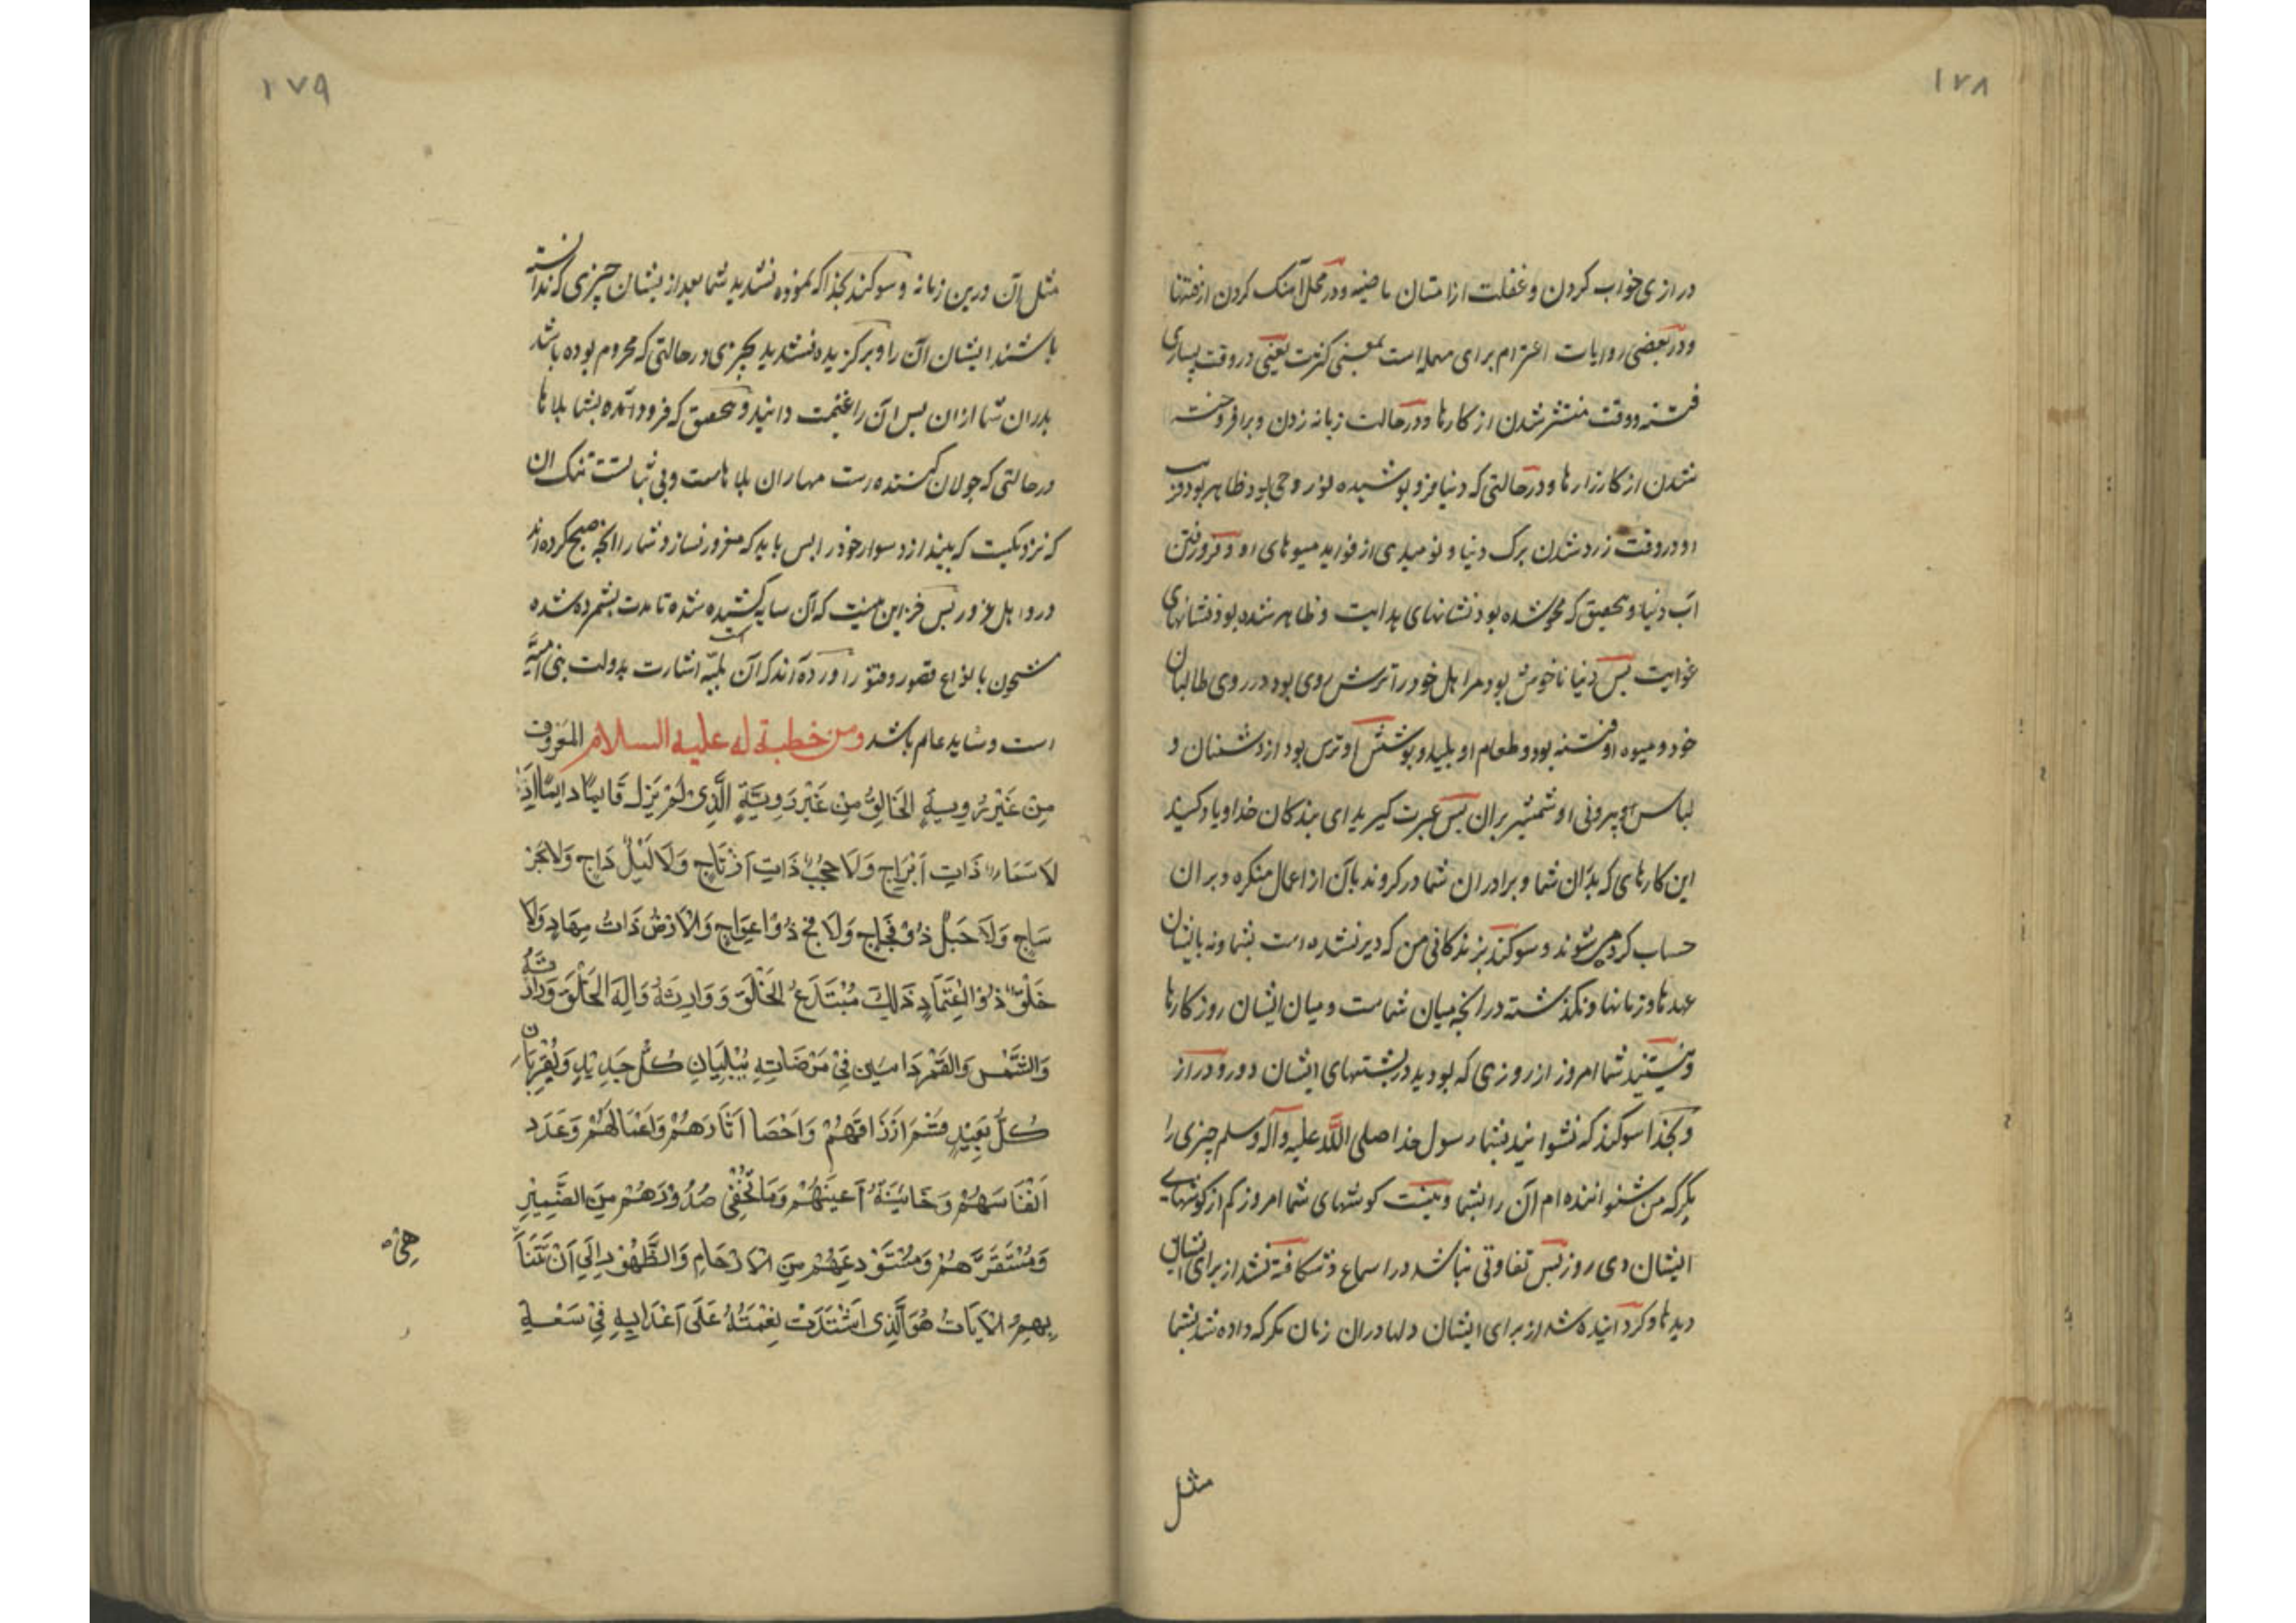 ١٧٨
درازی خواب کردن و غفلت از امتان ماضیه و در محل آهنک کردن از فتنها
و در بعضی روایات اعترام برای مهمله است بمعنی کثرت یعنی در وقت بسیاری
فتنه و وقت منتشر شدن از کارها و در حالت زبانه زدن و برافروخته
شدن از کارزارها و در حالتی که دنیا فرو پوشیده نور وحی بود ظاهر بود فریب
او در وقت زرد شدن برک دنیا و نومیدی از فواید میوهای او و فرو رفتن
آب دنیا و بتحقیق که محو شده بود نشانهای هدایت و ظاهر شده بود نشانهای
غوایت بس دنیا ناخوش بود مر اهل خود را ترش روی بود در روی طالبان
خود و میوه او فتنه بود و طعام او پلید و پوشش او ترس بود از دشمنان و
لباس بیرونی او شمشیر بران بس عبرت کیرید ای بندکان خدا و یاد کنید
این کارهای که پدران شما و برادران شما در کروند بآن از اعمال منکره و بر ان
حساب کرده میشوند و سوکند بزندکانی من که دیر نشده است بشما و نه بایشان
عهدها و زمانها و نکذشته در آنچه میان شماست و میان ایشان روزکارها
و نیستید شما امروز از روزی که بودید در پشتهای ایشان دور و دراز
و بخدا سوکند که نشوانید بشما رسول خدا صلی الله علیه وآله وسلم چیزی را
مکر که من شنواننده ام آن را بشما و نیست کوشهای شما امروز کم از کوشهای
ایشان دی روز بس تفاوتی نباشد در اسماع و شکافته نشد از برای ایشان
دیدها و کردانیده نشد از برای ایشان دلها در ان زمان مکر که داده شد بشما
مثل
١٧٩
مثل آن درین زمانه و سوکند بخدا که نموده نشدید شما بعد از یشان چیزی که ندانسته
باشند ایشان آن را و برکزیده نشدید بچیزی در حالتی که محروم بوده باشد
پدران شما از ان بس آن را غنیمت دانید و بتحقیق که فرود آمده بشما بلاها
در حالتی که جولان کننده است مهار ان بلاهاست و بی ثباتست تنک ان
که نزدیکست که بیندازد سوار خود را بس باید که مغرور نسازد شما را آنچه صبح کرده اند
در و اهل غرور بس جز این نیست که آن سایه کشیده شده تا مدت بشمرده شده
مشحون بانواع قصور و فتور آورده آند که آن بلیّه اشارت بدولت بنی امیّه
است و شاید عام باشد ومن خطبة له علیه السلام المَعروُف
مِنْ غَیْرِ رُویةٍ الخَالِقُ مِنْ غَیْرِ رَوِیَّةٍ الَّذِی لَمْ یَزَلْ قَایمًا دایمًا اِذْ
لَا سَمَاءٌ ذَاتِ اَبْرَاجٍ وَلَا حُجُبٌ ذَاتِ اَرْتَاجٍ وَلَا لَیْلٌ دَاجٍ وَلَا بَحْرٌ
سَاجٍ وَلَا جَبَلٌ ذُوْ فِجَاجٍ وَلَا فَجٌ ذُوْ اعوِجَاجٍ وَالْاَرْضُ ذَاتُ مِهَادٍ وَلَا
خَلْقٌ ذُوْ اعْتِمَادٍ ذَلِكَ مُبْتَدِعُ الخَلْقِ وَوَارِثهُ وَاِلَهُ الخَلْقِ وَرَازِقُهُ
وَالشَّمْسُ وَالقَمَرُ دَائبین فِیْ مَرْضَاتِهِ یُبْلِیَانِ كُلَّ جَدِیْدٍ وَیُقَرِّبَانِ
كُلَّ بَعِیْدٍ قَسَمَ اَرْزَاقَهُمْ وَاَحْصَا آثَارَهُمْ وَاَعْمَالَهُمْ وَعَدَدَ
اَنْفَاسَهُمْ وَخَائِنَةَ اَعیَنهُمْ وَمَا تُخْفِی صُدُوْرَهُمْ مِنَ الضَّمِیْرِ
وَمُسْتَقَرَّهُمْ وَمُسْتَوْدعَهُمْ مِنَ الْاَرْحَامِ وَالظُّهُوْرِ اِلَی اَنْ تَتَنَا
هِیْ
بِهِمُ الْغَایَاتُ هُوَ الَّذِی اشْتَدَّتْ نِقْمَتُهُ عَلَی اَعْدَایِهِ فِیْ سَعَةِ